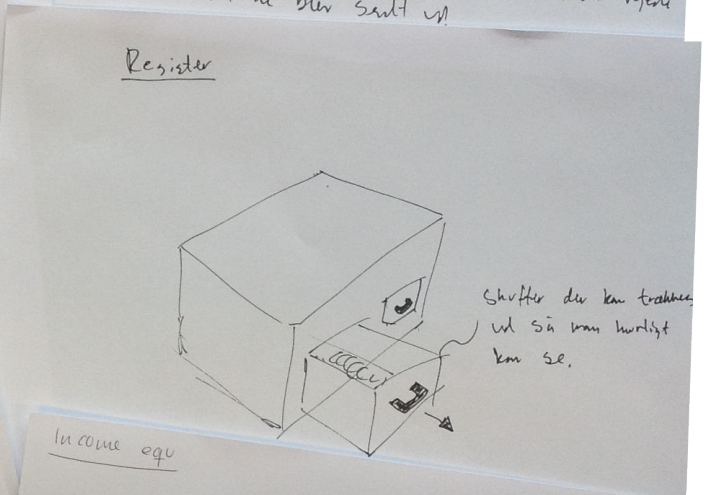 bliver sendt ud
Register
Skuffer der kan trækkes
ud så man hurtigt
kan se.
Income equ